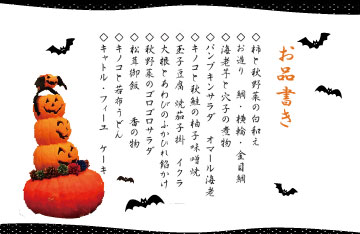 お品書き
◇柿と秋野菜の白和え
◇お造り 鯛・横輪・金目鯛
◇海老芋と穴子の煮物
◇パンプキンサラダ オマール海老
◇キノコと秋鮭の柚子味噌焼
◇玉子豆腐 焼茄子掛 イクラ
◇大根とあわびのふかひれ餡かけ
◇秋野菜のゴロゴロサラダ
◇松茸御飯 香の物
◇キノコと若布うどん
◇キャトル・フィーユ ケーキ